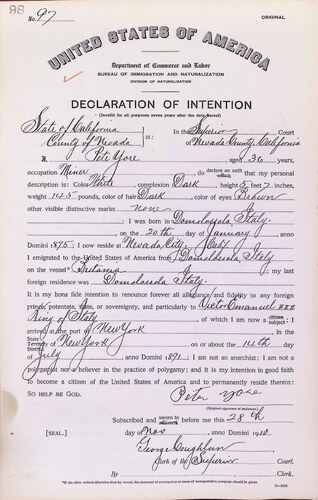 98
No. 97
ORIGINAL
UNITED STATES OF AMERICA
Department of Commerce and Labor
BUREAU OF IMMIGRATION AND NATURALIZATION
DIVISION OF NATURALIZATION
DECLARATION OF INTENTION
(Invalid for all purposes seven years after the date hereof)
State of California
County of Nevada
ss:
In the Superior Court
of Nevada County, California
I, Pete Yore, aged 36 years,
occupation Miner, do declare on oath that my personal
description is: Color White, complexion Dark, height 5 feet 7 inches,
weight 145 pounds, color of hair Dark, color of eyes Brown
other visible distinctive marks none
I was born in Domolossola Italy
on the 20th day of January, anno
Domini 1875; I now reside at Nevada City, Cal
I emigrated to the United States of America from Domolossola Italy
on the vessel Britania; my last
foreign residence was Domolossola Italy.
It is my bona fide intention to renounce forever all allegiance and fidelity to any foreign
prince, potentate, state, or sovereignty, and particularly to Victor Emanuel III
King of Italy, of whom I am now a citizen subject; I
arrived at the port of New York, in the
State Territory District of New York on or about the 14th day
of July, anno Domini 1891; I am not an anarchist; I am not a
polygamist nor a believer in the practice of polygamy; and it is my intention in good faith
to become a citizen of the United States of America and to permanently reside therein:
SO HELP ME GOD.
Peter Yore
(Original signature of declarant)
Subscribed and sworn to before me this 28th
[SEAL.] day of Nov, anno Domini 1910
George Coughlan
Clerk of the Superior Court.
By, Clerk.